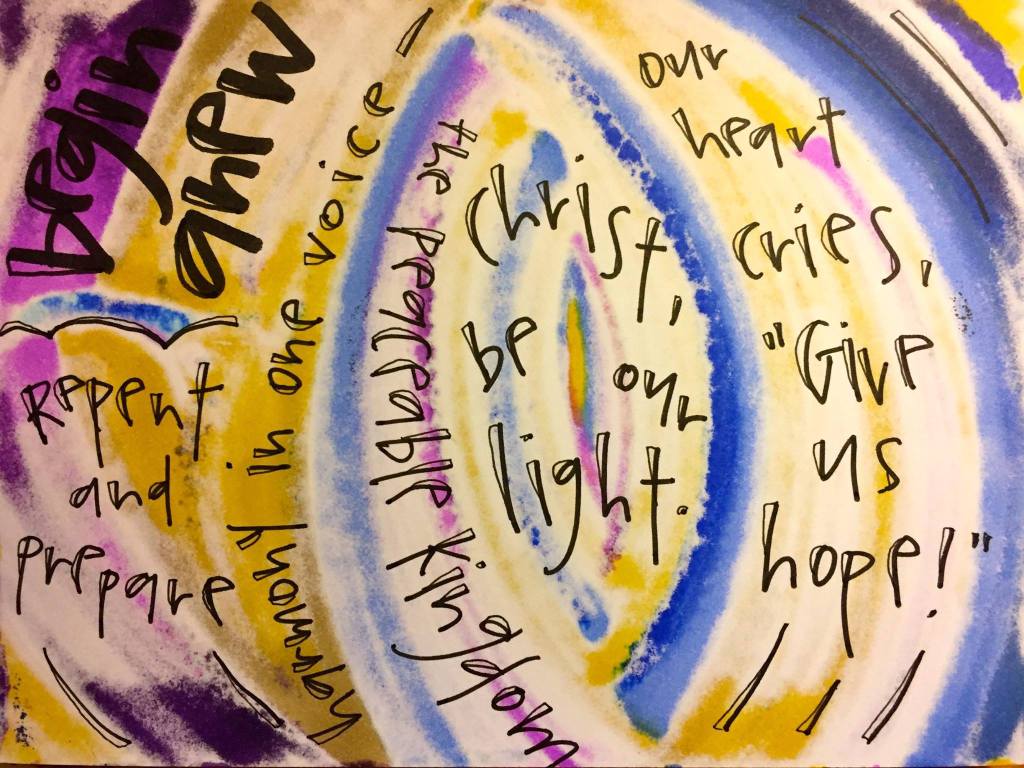 begin
anew
Repent
and
prepare
harmony in one voice –
the peaceable kingdom
christ,
be our
light.
our
heart
cries,
"Give
us
hope!"